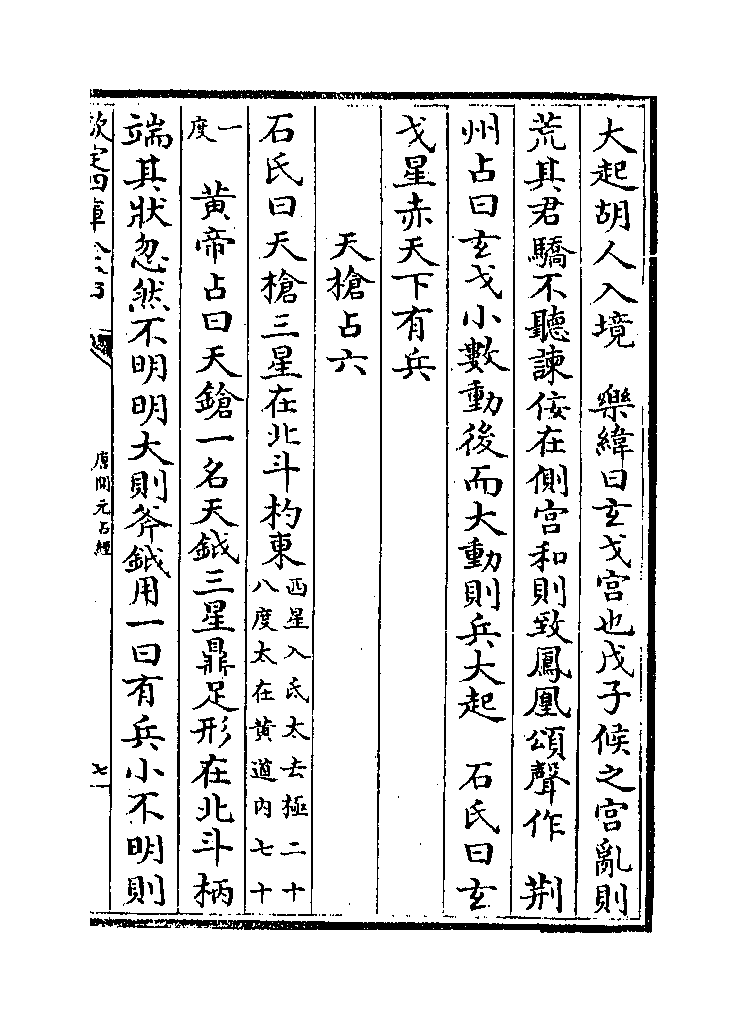 大起胡人入境　樂緯曰玄戈宮也戊子候之宮亂則
荒其君驕不聽諫佞在側宮和則致鳳凰頌聲作　荆
州占曰玄戈小數動後而大動則兵大起　石氏曰玄
戈星赤天下有兵
天槍占六
石氏曰天槍三星在北斗杓東西星入氐太去極二十八度太在黄道内七十
一度　黄帝占曰天鎗一名天鉞三星鼎足形在北斗柄
端其狀忽然不明明大則斧鉞用一曰有兵小不明則
欽定四庫全書
唐開元占經
七